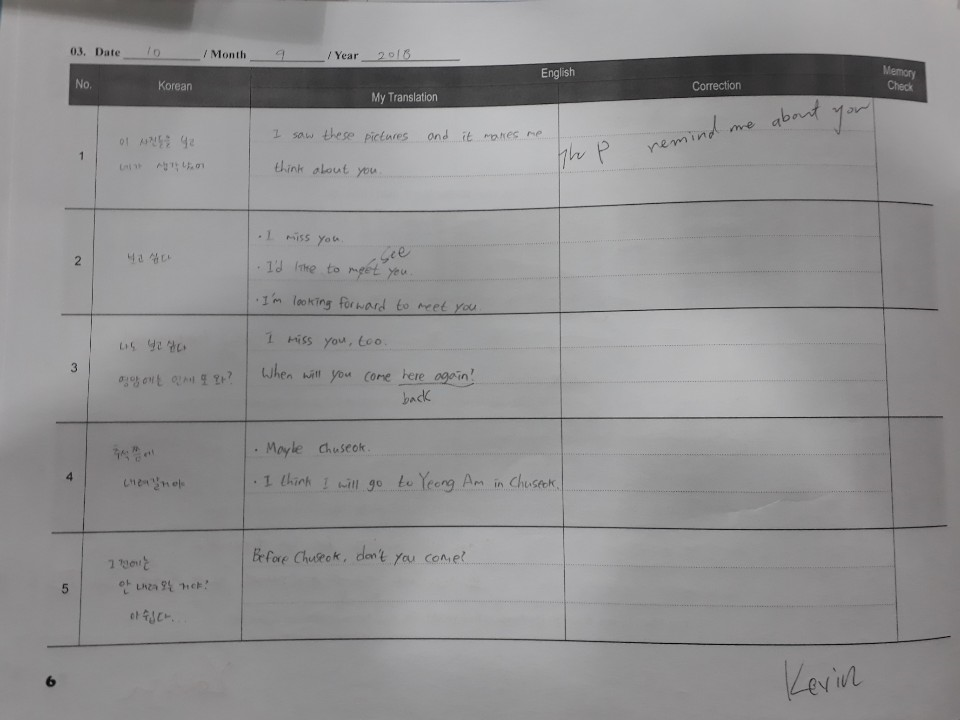 03. Date 10 / Month 9 / Year 2018
No. Korean English Memory Check
My Translation Correction
1
이 사진들을 보고
네가 생각났어
I saw these pictures and it makes me
think about you.
The P remind me about you
2
보고 싶다
· I miss you.
see
· I'd like to meet you.
· I'm looking forward to meet you
3
나도 보고 싶다
영암에는 언제 또 와?
I miss you, too.
When will you come here again?
back
4
추석쯤에
내려갈거야
· Maybe Chuseok.
· I think I will go to Yeong Am in Chuseok.
5
그 전에는
안 내려오는 거야?
아쉽다...
Before Chuseok, don't you come?
6
Kevin